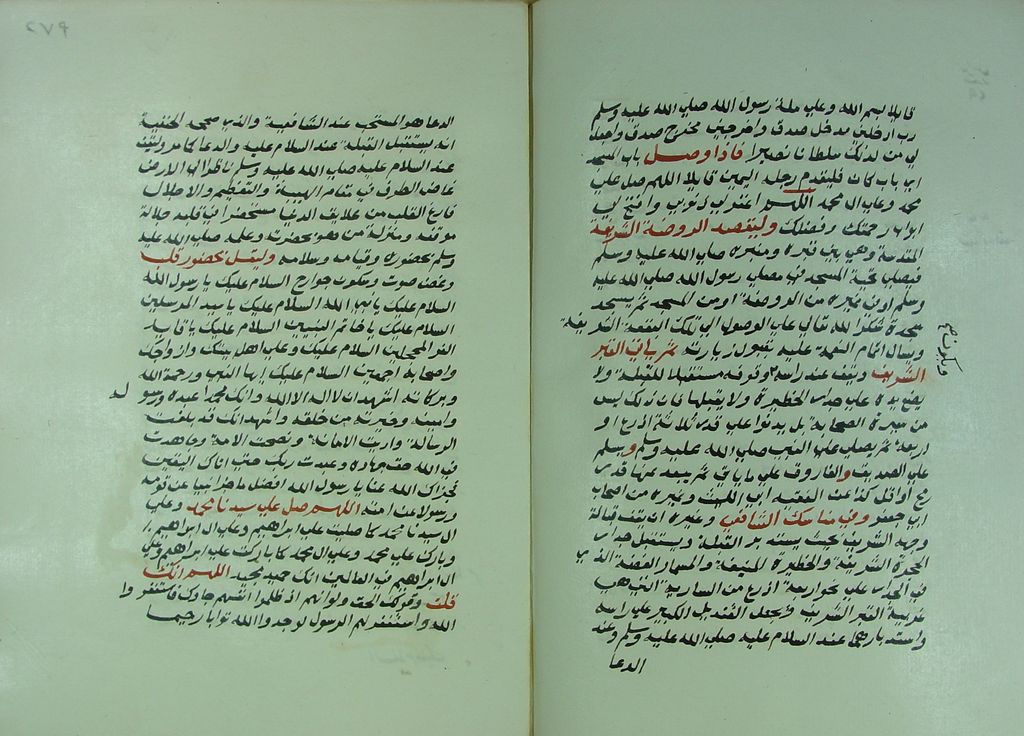 قايلا بسم الله وعلي ملة رسول الله صلي الله عليه وسلم
رب ادخلني مدخل صدق واخرجني مخرج صدق واجعل
لي من لدنك سلطانا نصيرا فاذا وصل باب المسجد
اي باب كان فليقدم رجله اليمين قايلا اللهم صل علي
محمد وعلي ال محمد اللهم اغفر لي ذنوبي وافتح لي
ابواب رحمتك وفضلك وليقصد الروضة الشريفة
المقدسة وهي بين قبره ومنبره صلي الله عليه وسلم
فيصلي تحية المسجد في مصلي رسول الله صلي الله عليه
وسلم او في غيره من الروضة او من المسجد ثم يسجد
سجدة شكرا لله تعالي علي الوصول الي تلك البقعة الشريفة
ويسال اتمام النعمة عليه بقبول زيارته ثم ياتي القبر
الشريف ويقف عند راسه وقوفه مستقبلا للقبلة ولا
يضع يده علي جدار الحظيرة ولا يقبلها فان ذلك ليس
من سيرة الصحابة بل يدنوا علي قدر ثلاثة اذرع او
اربعة ثم يصلي علي النبي صلي الله عليه وسلم ويسلم
علي الصديق والفاروق علي ما ياتي ثم يبعد عنها قدر
رمح او اقل كذا عن الفقيه ابي الليث وغيره من اصحاب
ابي حنيفة وفي مناسك الشافعي وغيره ان يقف قبالة
وجهه الشريف بحيث يستدبر القبلة ويستقبل جدار
الحجرة الشريفة والحظيرة المنيفة والمسمار الفضة الذي
في الجدار علي نحو اربعة اذرع من السارية التي هي
غربية القبر الشريف ويجعل القنديل الكبير علي راسه
واستدبارها عند السلام عليه صلي الله عليه وسلم وعند
الدعا
ويكون
الدعا هو المستحب عند الشافعية والذي صححه الحنفية
انه يستقبل القبلة عند السلام عليه والدعا كما مر وليقف
عند السلام عليه صلي الله عليه وسلم ناظرا الي الارض
غاض الطرف في مقام الهيبة والتعظيم والاجلال
فارغ القلب من علايق الدنيا مستحضرا في قلبه جلالة
موقفه ومنزلة من هو بحضرته وعلمه صلي الله عليه
وسلم بحضوره وقيامه وسلامه وليقل بحضور قلب
وغض صوت وسكون جوارح السلام عليك يا رسول الله
السلام عليك يا نبي الله السلام عليك يا سيد المرسلين
السلام عليك يا خاتم النبيين السلام عليك يا قايد
الغر المحجلين السلام عليك وعلي اهل بيتك وازواجك
واصحابك اجمعين السلام عليك ايها النبي ورحمة الله
وبركاته اشهد ان لا اله الا الله وانك محمدا عبده ورسو
ل
وامينه وخيرته من خلقه واشهد انك قد بلغت
الرسالة واديت الامانة ونصحت الامة وجاهدت
في الله حق جهاده وعبدت ربك حتي اتاك اليقين
فجزاك الله عنا يا رسول الله افضل ما جزا نبيا عن قومه
ورسولا عن امته اللهم صل علي سيدنا محمد وعلي
ال سيدنا محمد كما صليت علي ابراهيم وعلي ال ابراهيم
وبارك علي محمد وعلي ال محمد كما باركت علي ابراهيم وعلي
ال ابراهيم في العالمين انك حميد مجيد اللهم انك
قلت وقولك الحق ولو انهم اذ ظلموا انفسهم جاوك فاستغفروا
الله واستغفر لهم الرسول لوجدوا الله توابا رحيما